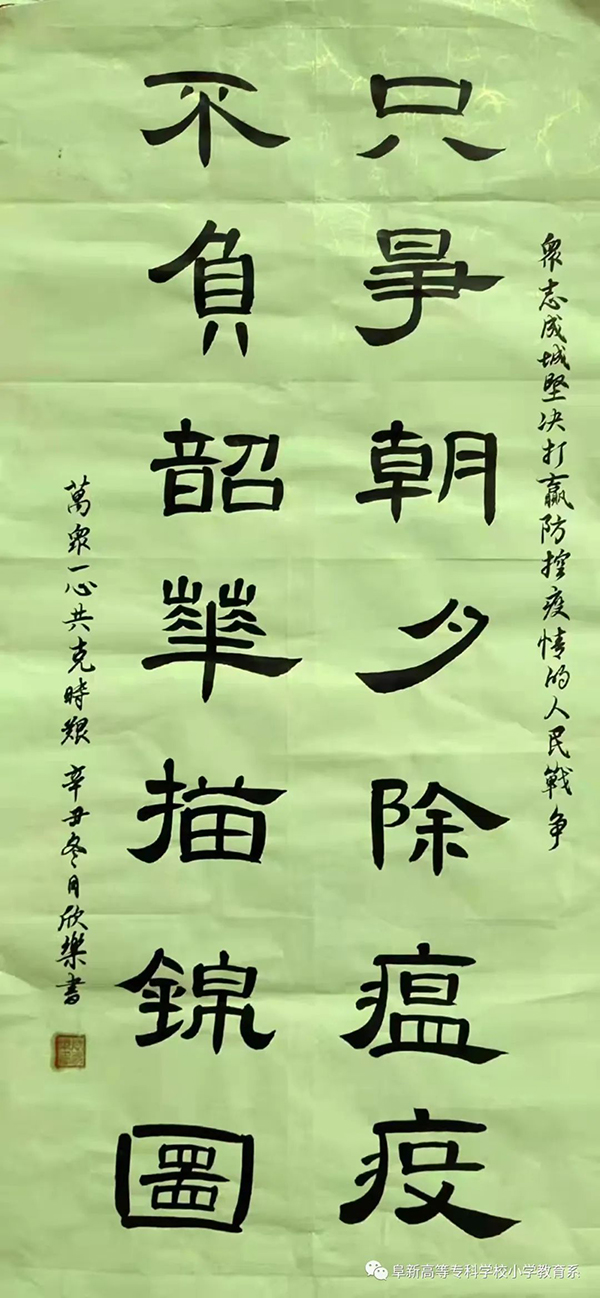 衆志成城堅决打贏防控疫情的人民戰争
只爭朝夕除瘟疫
不負韶華描錦圖
萬衆一心共克時艱 辛丑冬月欣樂書
阜新高等专科学校小学教育系